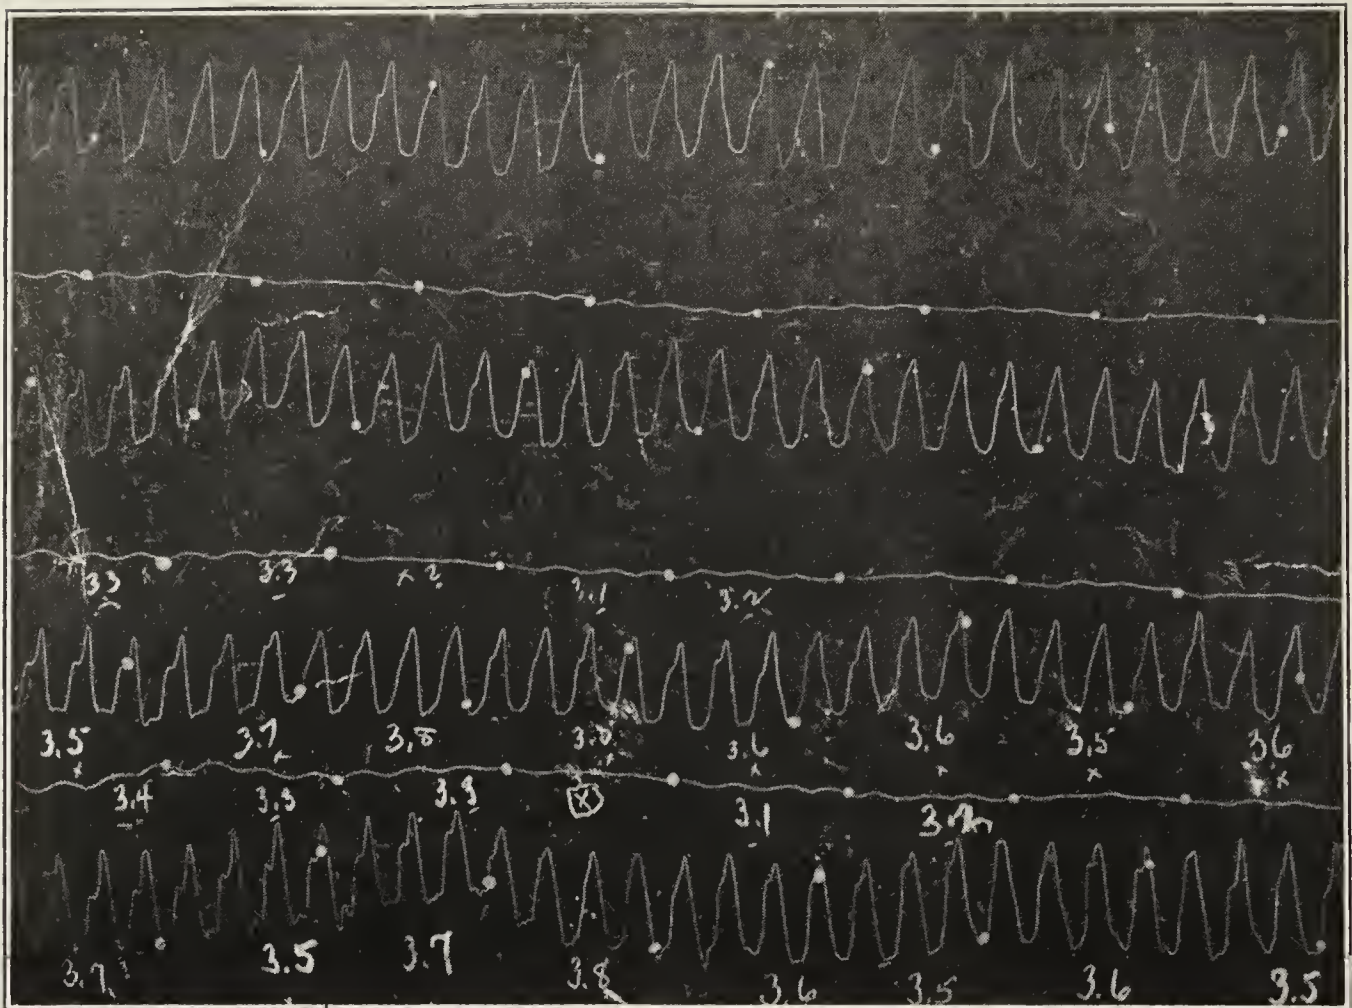 3.3 3.3 x 2 3.1 3.2
3.5 3.7 3.8 3.8 3.6 3.6 3.5 3.6
3.4 3.3 3.3 x 3.1
3.7 3.5 3.7 3.8 3.6 3.5 3.6 3.5